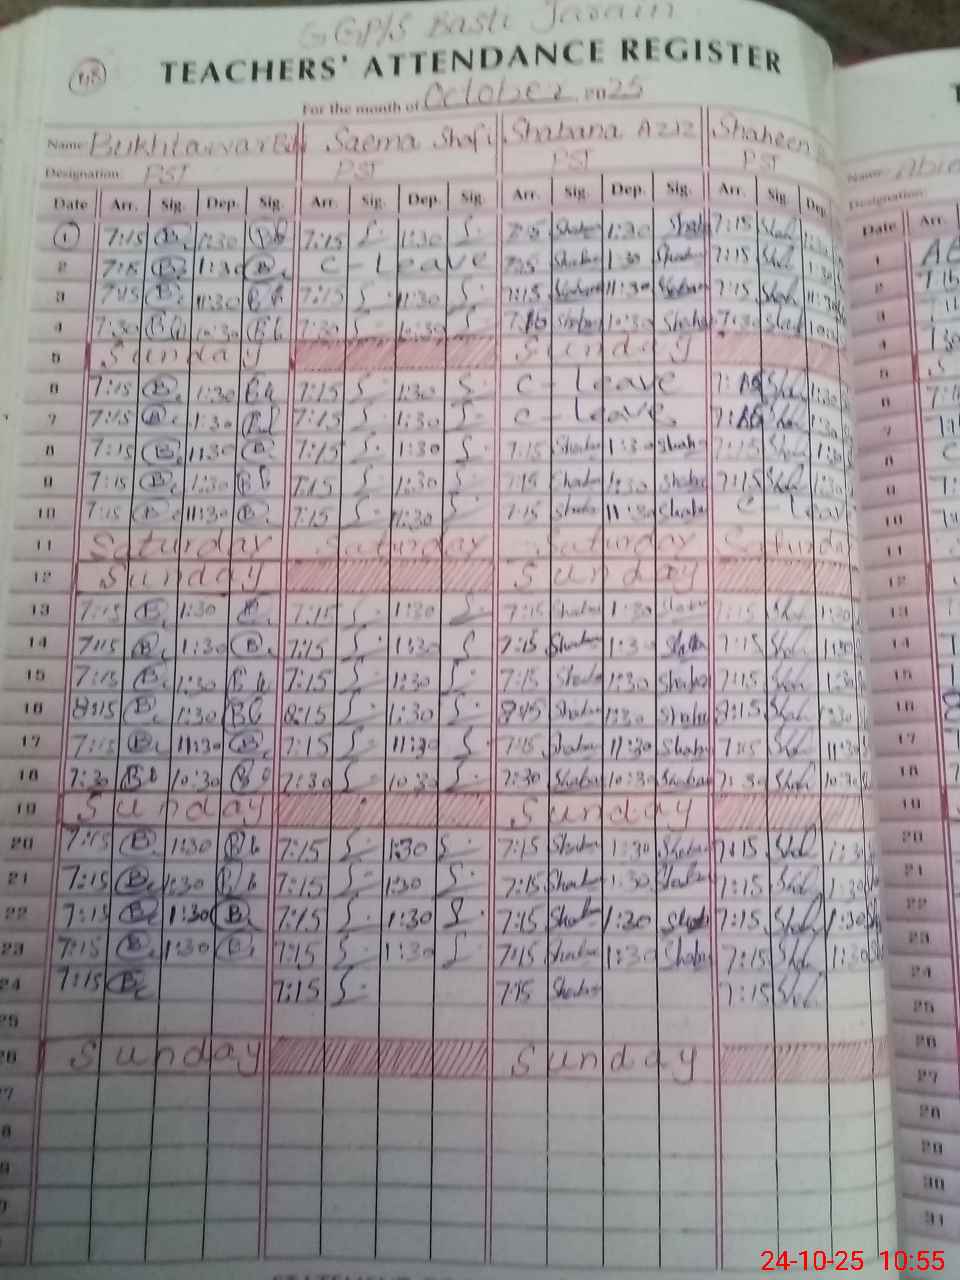 GGP/S Basti Jarain
118
TEACHERS' ATTENDANCE REGISTER
For the month of October 2025
Name Bukhtawar Bibi Saema Shafi Shabana Aziz Shaheen
Designation: PST PST PST PST
Date Arr. Sig. Dep. Sig. Arr. Sig. Dep. Sig. Arr. Sig. Dep. Sig. Arr. Sig. Dep.
1 7:15 B. 1:30 Bb 7:15 S. 1:30 S. 7:15 Shaba 1:30 Shaba 7:15 Shah 1:30
2 7:15 B. 1:30 B. C-Leave 7:15 Shaba 1:30 Shaba 7:15 Shah 1:30
3 7:15 B. 11:30 Bb 7:15 S. 11:30 S. 7:15 Shaba 11:30 Shaba 7:15 Shah 11:30
4 7:30 Bb 10:30 Bb 7:30 S 10:30 S. Shaba 10:30 Shaba 7:30 Shah
5 Sunday Sunday
6 7:15 B. 1:30 Bb 7:15 S. 1:30 S. C-Leave Shah 1:30
7 7:15 B. 1:30 Bb 7:15 S. 1:30 S. C-Leave Shah 1:30
8 7:15 B. 11:30 B. 7:15 S. 1:30 S. 7:15 Shaba 1:30 Shaba 7:15 Shah 1:30
9 7:15 B. 1:30 Bb 7:15 S. 1:30 S. 7:15 Shaba 1:30 Shaba 7:15 Shah 1:30
10 7:15 B. 11:30 B. 7:15 S. 11:30 S 7:15 Shaba 11:30 Shaba C-Leav
11 Saturday Saturday Saturday Saturda
12 Sunday Sunday
13 7:15 B. 1:30 B. 7:15 S. 1:30 S. 7:15 Shaba 1:30 Shaba 7:15 Shah 1:30
14 7:15 B. 1:30 B. 7:15 S. 1:30 S 7:15 Shaba 1:30 Shaba 7:15 Shah 1:30
15 7:15 B. 1:30 Bb 7:15 S. 1:30 S. 7:15 Shaba 1:30 Shaba 7:15 Shah 1:30
16 8:15 B. 1:30 Bb 8:15 S. 1:30 S. 8:15 Shaba 1:30 Shaba 8:15 Shah 1:30
17 7:15 B. 11:30 B. 7:15 S. 11:30 S 7:15 Shaba 11:30 Shaba 7:15 Shah 11:30
18 7:30 Bb 10:30 Bb 7:30 S 10:30 S. 7:30 Shaba 10:30 Shaba 7:30 Shah 10:30
19 Sunday Sunday
20 7:15 B. 1:30 Bb 7:15 S. 1:30 S. 7:15 Shaba 1:30 Shaba 7:15 Shah 1:30
21 7:15 B. 1:30 Bb 7:15 S. 1:30 S. 7:15 Shaba 1:30 Shaba 7:15 Shah 1:30
22 7:15 B. 1:30 B. 7:15 S. 1:30 S. 7:15 Shaba 1:30 Shaba 7:15 Shah 1:30
23 7:15 B. 1:30 B. 7:15 S 1:30 S 7:15 Shaba 1:30 Shaba 7:15 Shah 1:30
24 7:15 B. 7:15 S. 7:15 Shaba 7:15 Shah
25
26 Sunday Sunday
Name:
Designation:
Date Arr.
1
2
3
4
5
6
7
8
9
10
11
12
13
14
15
16
17
18
19
20
21
22
23
24
25
26
27
28
29
30
31
24-10-25 10:55